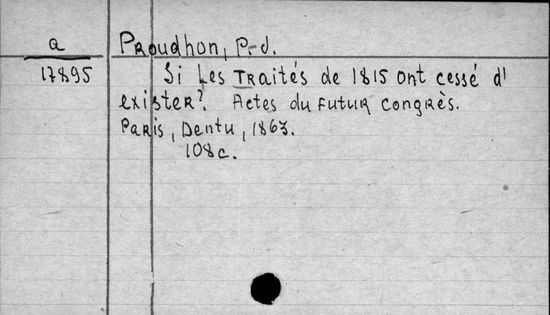 Q
17895
Proudhon, P.-J.
Si les Traités de 1815 ont cessé d'
exister? Actes du futur congrès.
Paris, Dentu, 1863.
108c.